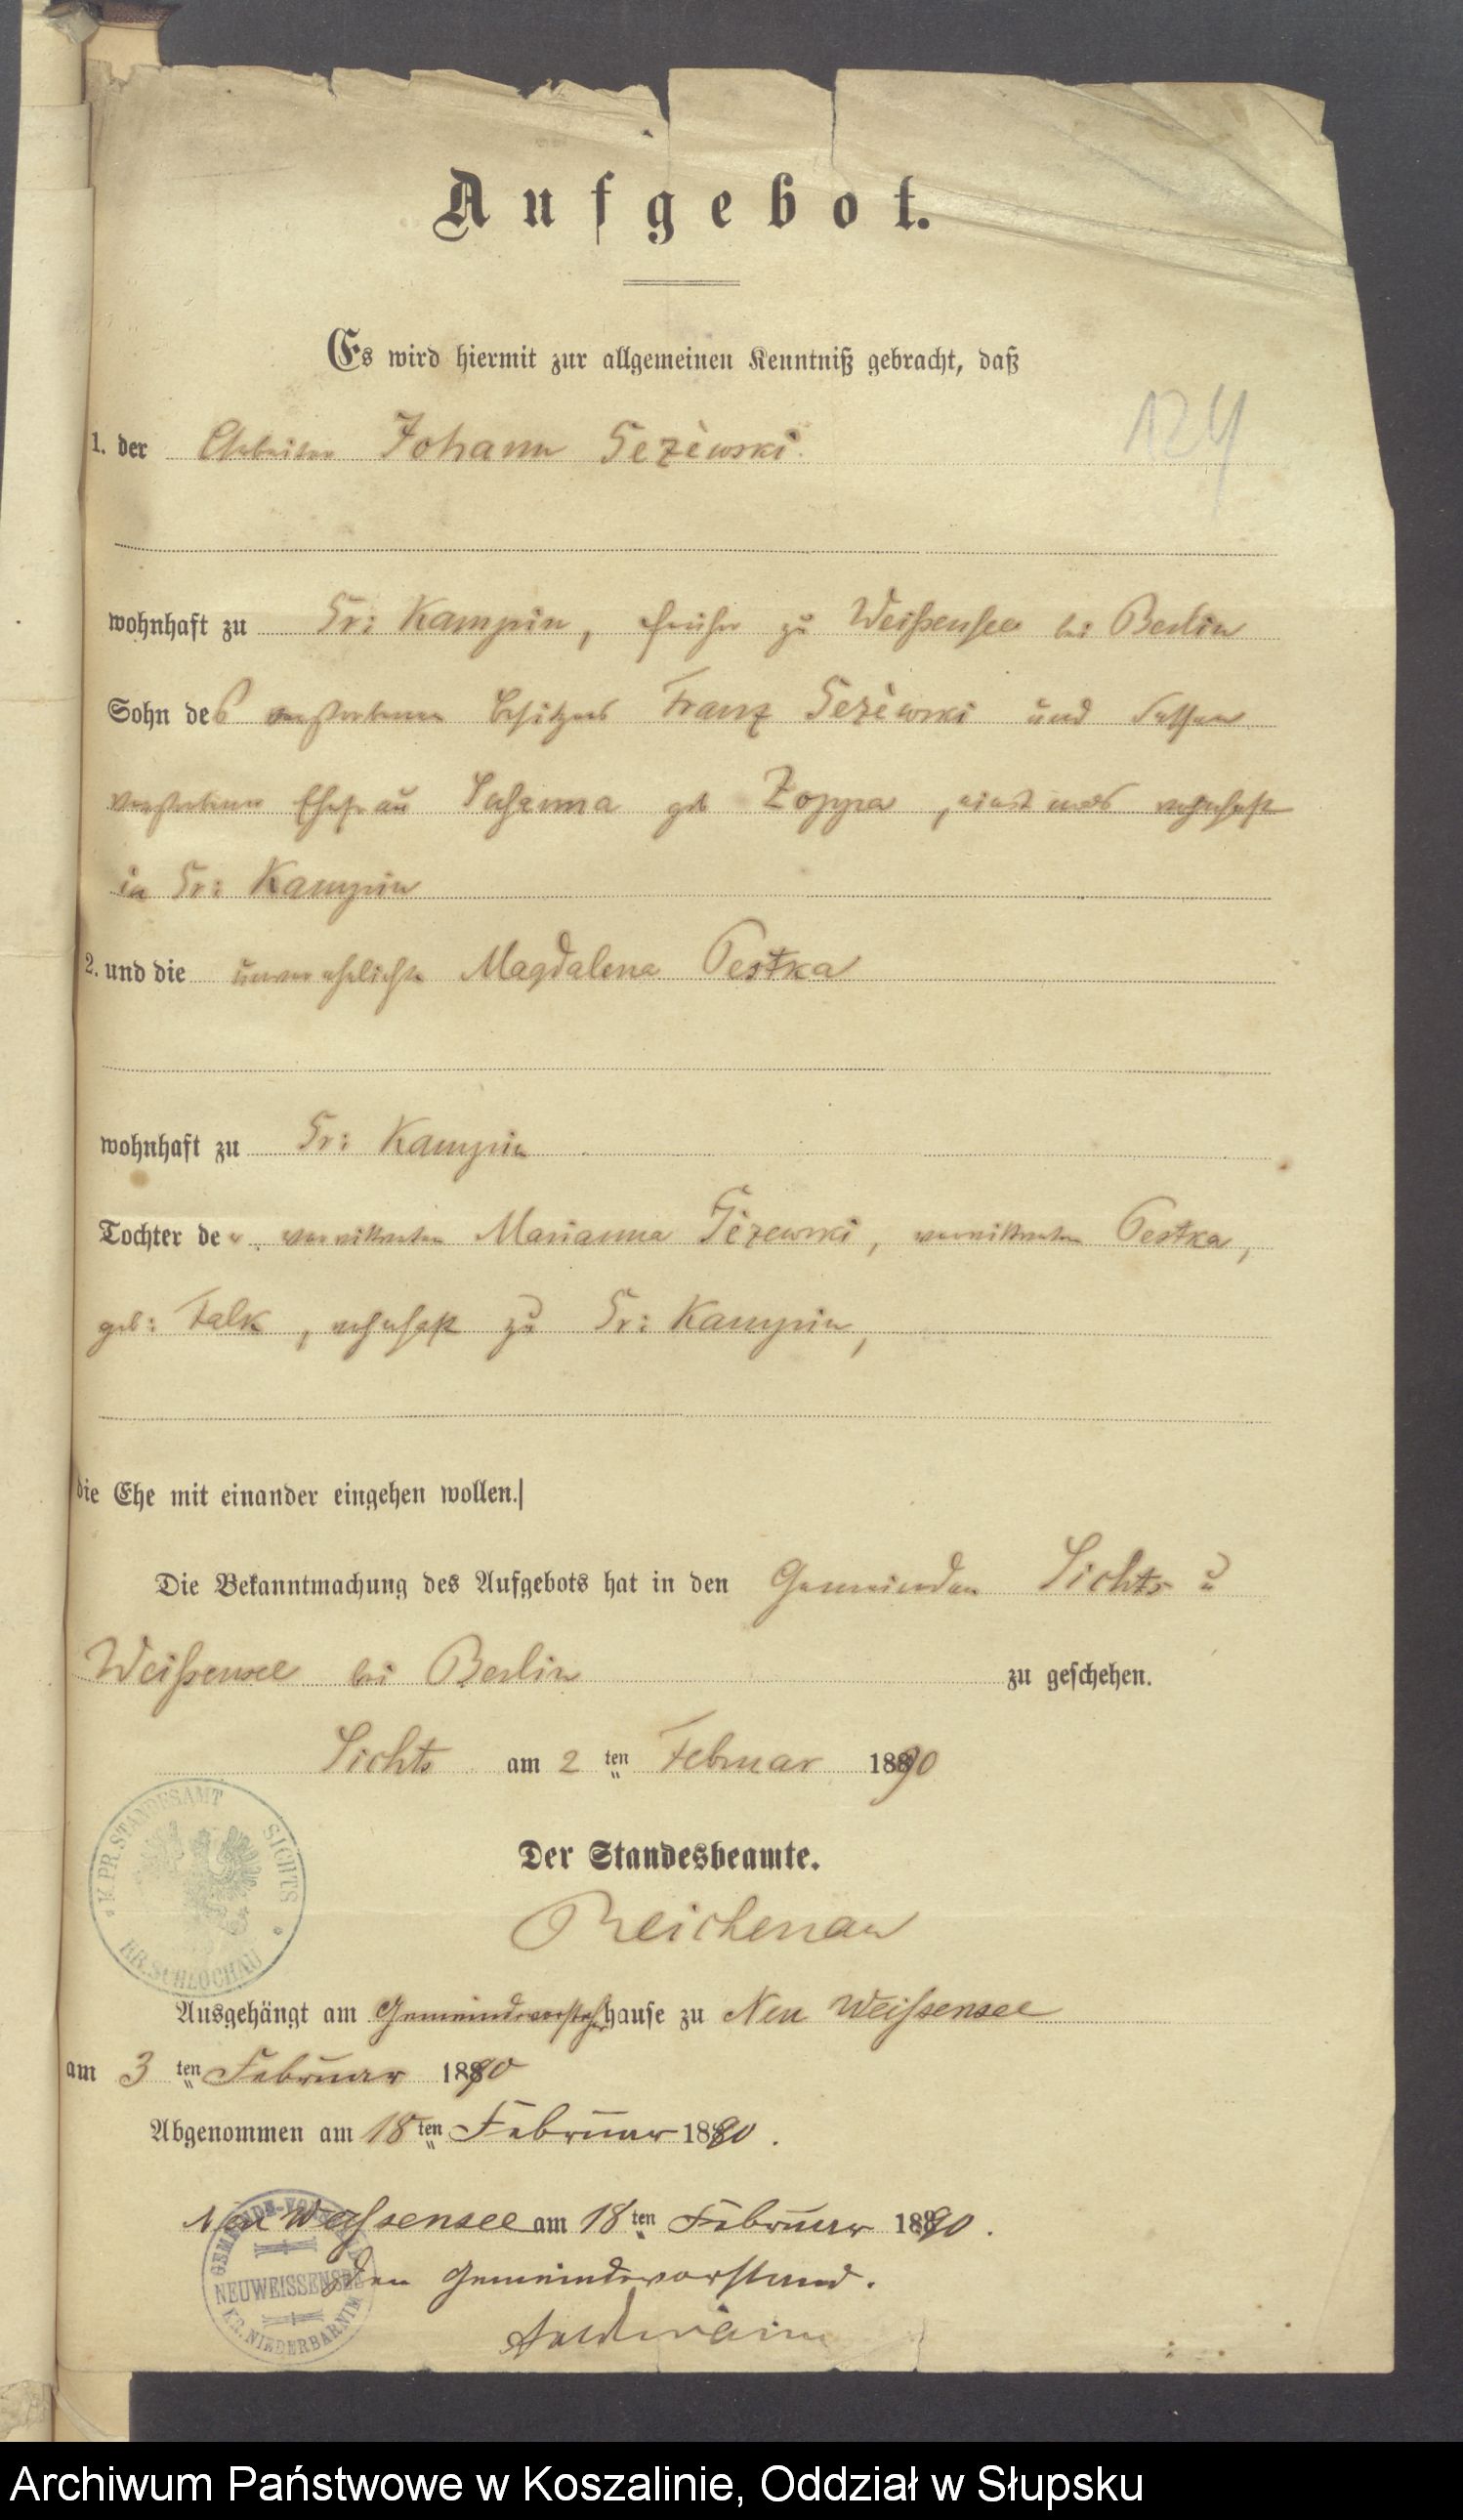 Aufgebot.
Es wird hiermit zur allgemeinen Kenntniß gebracht, daß
124
1. der Arbeiter Johann Gezewski
wohnhaft zu Gr: Kampin, früher zu Weißensee bei Berlin
Sohn des verstorbenen Besitzers Franz Gezewski und dessen
verstorbenen Ehefrau geb Zoppa, wohnhaft
in Gr: Kampin
2. und die unverehelichte Magdalena Pestka
wohnhaft zu Gr: Kampin
Tochter der verwittweten Marianna Gezewski, verwittweten Pestka,
geb: Falk, wohnhaft zu Gr: Kampin,
die Ehe mit einander eingehen wollen.
Die Bekanntmachung des Aufgebots hat in den Gemeinden Sichts u
Weißensee bei Berlin zu geschehen.
Sichts am 2 ten Februar 1890
Der Standesbeamte.
Reichenau
K. PR. STANDESAMT SICHTS
KR. SCHLOCHAU
Ausgehängt am Gemeindevorsteherhause zu Neu Weissensee
am 3 ten Februar 1890
Abgenommen am 18 ten Februar 1890.
Neu Weissensee am 18 ten Februar 1890.
Der Gemeindevorstand.
NEUWEISSENSEE
KR. NIEDERBARNIM
Archiwum Państwowe w Koszalinie, Oddział w Słupsku